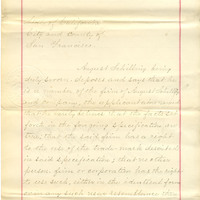 State of California
City and County of
San Francisco
August Schilling being
duly sworn deposes and says that he
is a member of the firm of August Schilling
and Company, the applicant
that he verily believes that the facts set
forth in the foregoing specification are
true, that the said firm has a right
to the use of the trade mark described
in said specification; that no other
person, firm or corporation has the right
to use such, either in the identical form
or in any such near resemblance